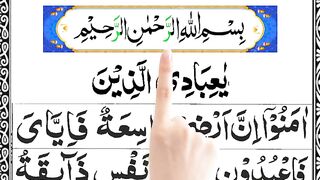 بِسْمِ اللهِ الرَّحْمٰنِ الرَّحِيْمِ
يٰعِبَادِىَ الَّذِيْنَ
اٰمَنُوْۤا اِنَّ فَاِيَّاىَ
فَاعْبُدُوْنِ نَفْسٍ ذَآئِقَةُ